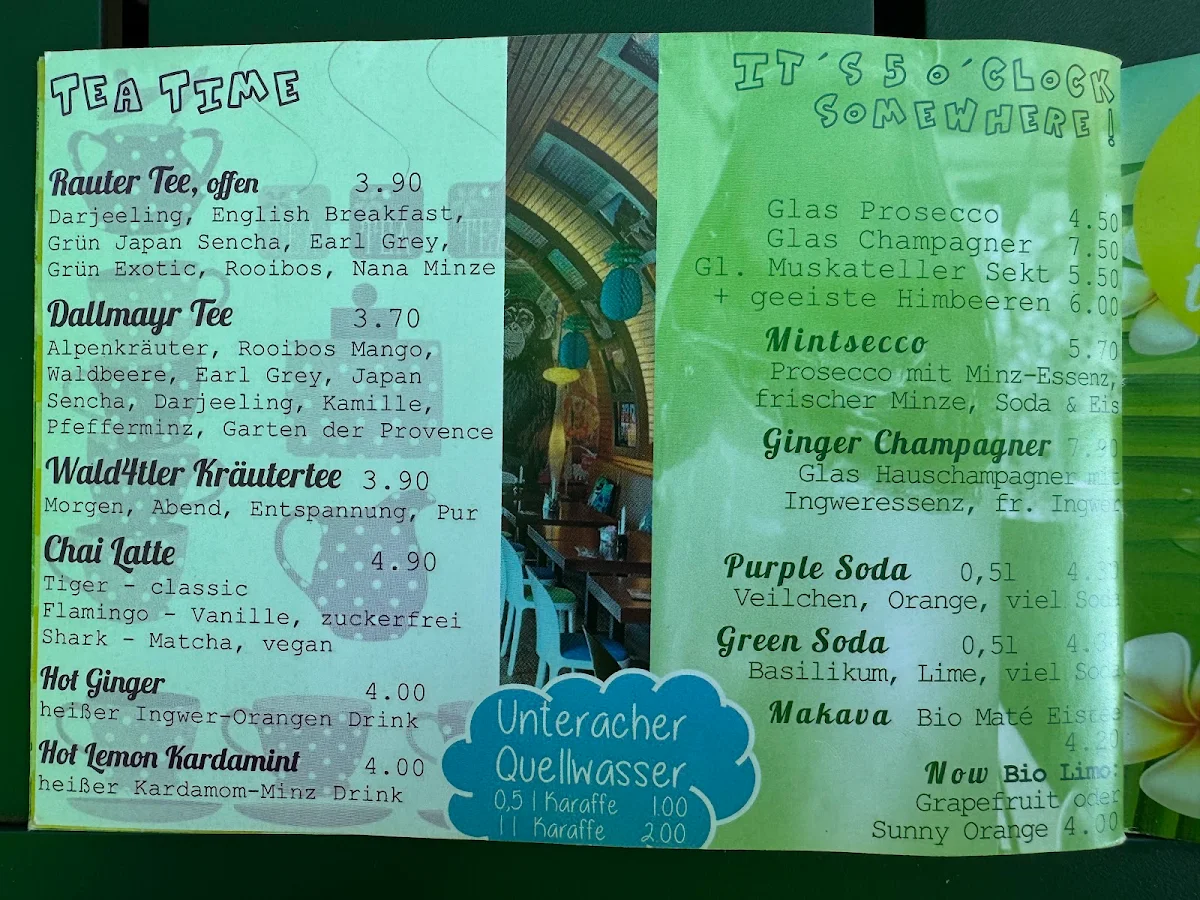 TEA TIME
Rauter Tee, offen 3.90
Darjeeling, English Breakfast,
Grün Japan Sencha, Earl Grey,
Grün Exotic, Rooibos, Nana Minze
Dallmayr Tee 3.70
Alpenkräuter, Rooibos Mango,
Waldbeere, Earl Grey, Japan
Sencha, Darjeeling, Kamille,
Pfefferminz, Garten der Provence
Wald4tler Kräutertee 3.90
Morgen, Abend, Entspannung, Pur
Chai Latte 4.90
Tiger - classic
Flamingo - Vanille, zuckerfrei
Shark - Matcha, vegan
Hot Ginger 4.00
heißer Ingwer-Orangen Drink
Hot Lemon Kardamint 4.00
heißer Kardamom-Minz Drink
Unteracher
Quellwasser
0,5 l Karaffe 1.00
1 l Karaffe 2.00
IT´S 5 O´CLOCK
SOMEWHERE!
Glas Prosecco 4.50
Glas Champagner 7.50
Gl. Muskateller Sekt 5.50
+ geeiste Himbeeren 6.00
Mintsecco 5.70
Prosecco mit Minz-Essenz,
frischer Minze, Soda & Eis
Ginger Champagner 7.90
Glas Hauschampagner mit
Ingweressenz, fr. Ingwer
Purple Soda 0,5l
Veilchen, Orange, viel Soda
Green Soda 0,5l
Basilikum, Lime, viel Soda
Makava Bio Maté Eistee
4.20
Now Bio Limo:
Grapefruit oder
Sunny Orange 4.00